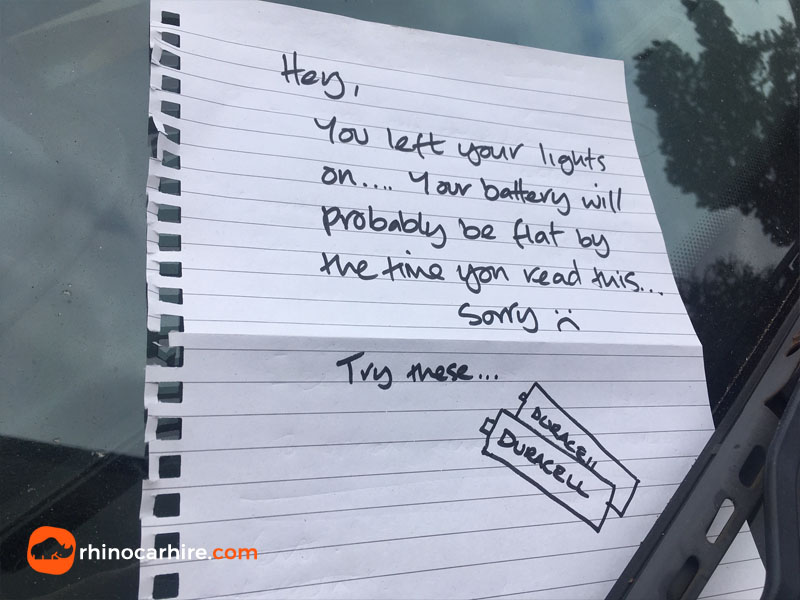 Hey,
You left your lights
on.... Your battery will
probably be flat by
the time you read this...
Sorry :(
Try these...
DURACELL
DURACELL
rhinocarhire.com